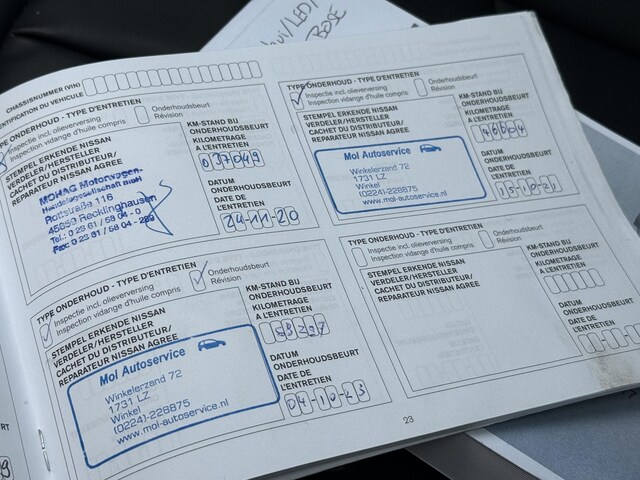 /LED/
BOSE
CHASSISNUMMER (VIN)
IDENTIFICATION DU VEHICULE
TYPE ONDERHOUD - TYPE D'ENTRETIEN
Inspectie incl. olieverversing
Inspection vidange d'huile compris
Onderhoudsbeurt
Révision
STEMPEL ERKENDE NISSAN
VERDELER/HERSTELLER
CACHET DU DISTRIBUTEUR/
REPARATEUR NISSAN AGREE
MOHAG Motorwagen-
Handelsgesellschaft mbH
Rottstraße 116
45659 Recklinghausen
Tel.: 0 23 61 / 58 04 - 0
Fax: 0 23 61 / 58 04 - 289
KM-STAND BIJ
ONDERHOUDSBEURT
KILOMETRAGE
A L'ENTRETIEN
037049
DATUM
ONDERHOUDSBEURT
DATE DE
L'ENTRETIEN
24-11-20
TYPE ONDERHOUD - TYPE D'ENTRETIEN
Inspectie incl. olieverversing
Inspection vidange d'huile compris
Onderhoudsbeurt
Révision
STEMPEL ERKENDE NISSAN
VERDELER/HERSTELLER
CACHET DU DISTRIBUTEUR/
REPARATEUR NISSAN AGREE
Mol Autoservice
Winkelerzand 72
1731 LZ
Winkel
(0224)-228875
www.mol-autoservice.nl
KM-STAND BIJ
ONDERHOUDSBEURT
KILOMETRAGE
A L'ENTRETIEN
DATUM
ONDERHOUDSBEURT
DATE DE
L'ENTRETIEN
15-10-21
TYPE ONDERHOUD - TYPE D'ENTRETIEN
Inspectie incl. olieverversing
Inspection vidange d'huile compris
Onderhoudsbeurt
Révision
STEMPEL ERKENDE NISSAN
VERDELER/HERSTELLER
CACHET DU DISTRIBUTEUR/
REPARATEUR NISSAN AGREE
Mol Autoservice
Winkelerzand 72
1731 LZ
Winkel
(0224)-228875
www.mol-autoservice.nl
KM-STAND BIJ
ONDERHOUDSBEURT
KILOMETRAGE
A L'ENTRETIEN
DATUM
ONDERHOUDSBEURT
DATE DE
L'ENTRETIEN
04-10-23
TYPE ONDERHOUD - TYPE D'ENTRETIEN
Inspectie incl. olieverversing
Inspection vidange d'huile compris
Onderhoudsbeurt
Révision
STEMPEL ERKENDE NISSAN
VERDELER/HERSTELLER
CACHET DU DISTRIBUTEUR/
REPARATEUR NISSAN AGREE
KM-STAND BIJ
ONDERHOUDSBEURT
KILOMETRAGE
A L'ENTRETIEN
DATUM
ONDERHOUDSBEURT
DATE DE
L'ENTRETIEN
23